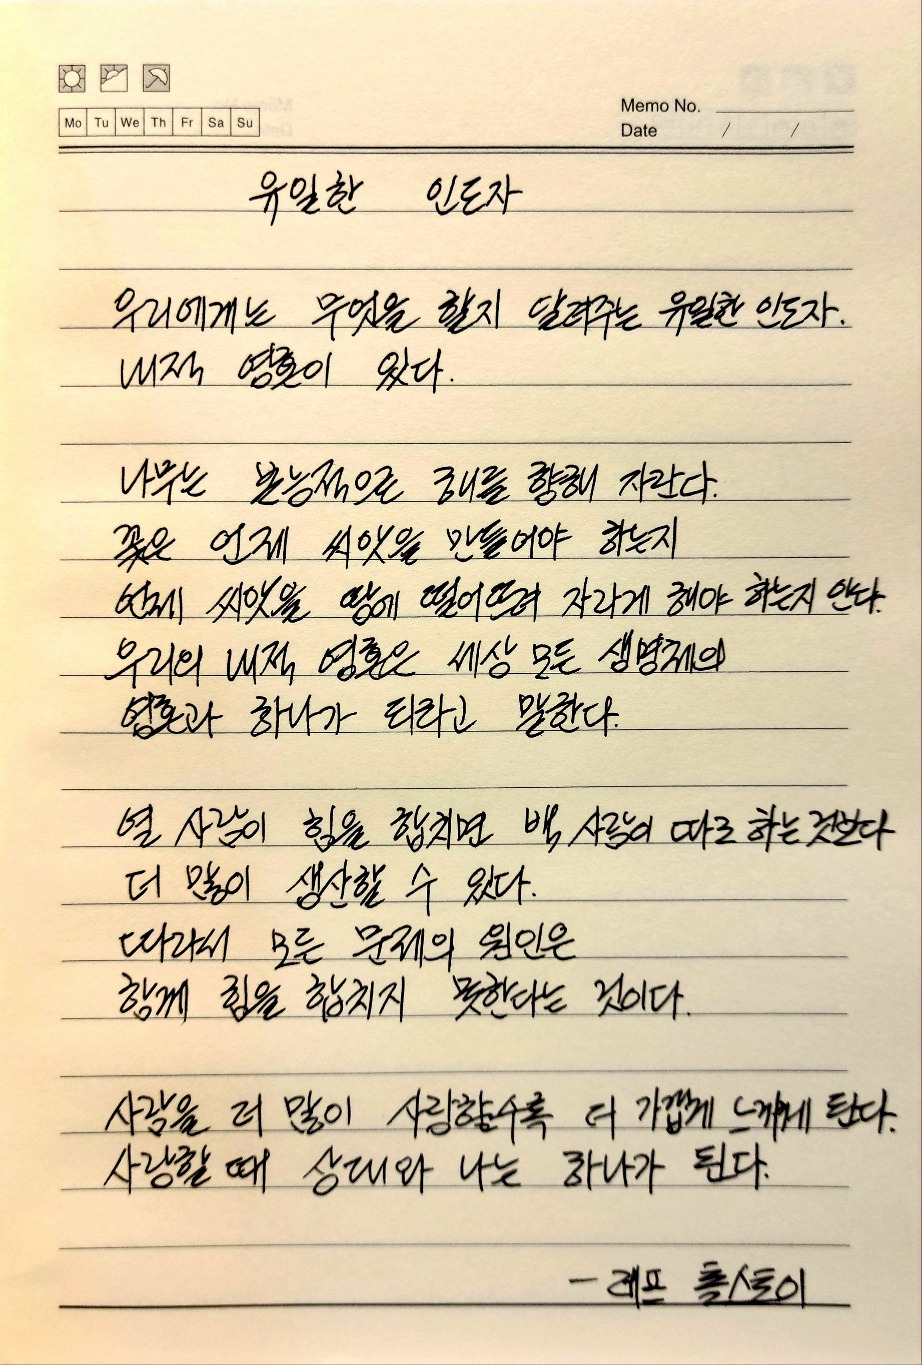 Mo Tu We Th Fr Sa Su
Memo No.
Date / /
유일한 인도자
우리에게는 무엇을 할지 알려주는 유일한 인도자.
내적 영혼이 있다.
나무는 본능적으로 해를 향해 자란다.
꽃은 언제 씨앗을 만들어야 하는지
언제 씨앗을 땅에 떨어뜨려 자라게 해야 하는지 안다.
우리의 내적 영혼은 세상 모든 생명체의
영혼과 하나가 되라고 말한다.
열 사람이 힘을 합치면 백 사람이 따로 하는 것보다
더 많이 생산할 수 있다.
따라서 모든 문제의 원인은
함께 힘을 합치지 못한다는 것이다.
사람을 더 많이 사랑할수록 더 가깝게 느끼게 된다.
사랑할 때 상대와 나는 하나가 된다.
- 레프 톨스토이